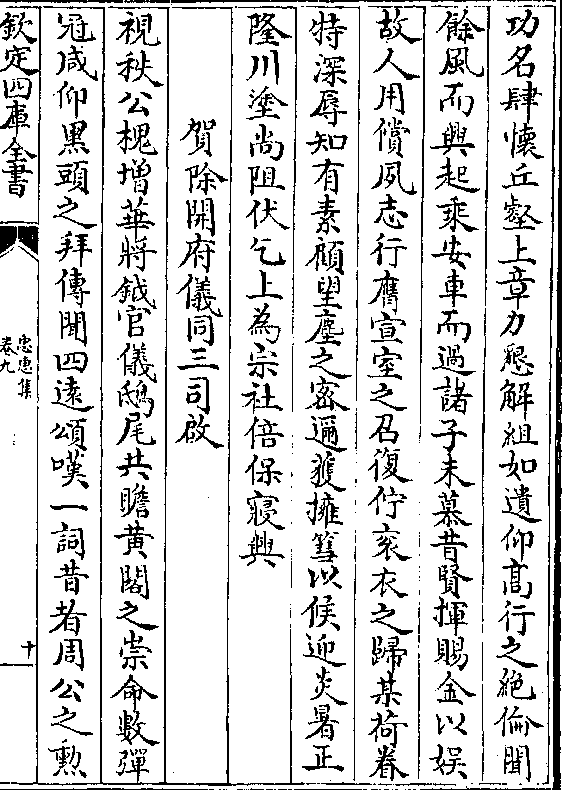 功名肆懷丘壑上章力懇解組如遺仰髙行之絶倫聞
餘風而興起乘安車而過諸子未慕昔賢揮賜金以娱
故人用償夙志行膺宣室之召復佇衮衣之歸某荷眷
特深辱知有素顧望塵之宻邇獲擁篲以候迎炎暑正
隆川塗尚阻伏乞上為宗社倍保寢興
賀除開府儀同三司啟
視秩公槐增華將鉞官儀鴟尾共瞻黄閣之崇命數彈
冠咸仰黒頭之拜傳聞四逺頌嘆一詞昔者周公之勲
欽定四庫全書
忠惠集
卷九
十